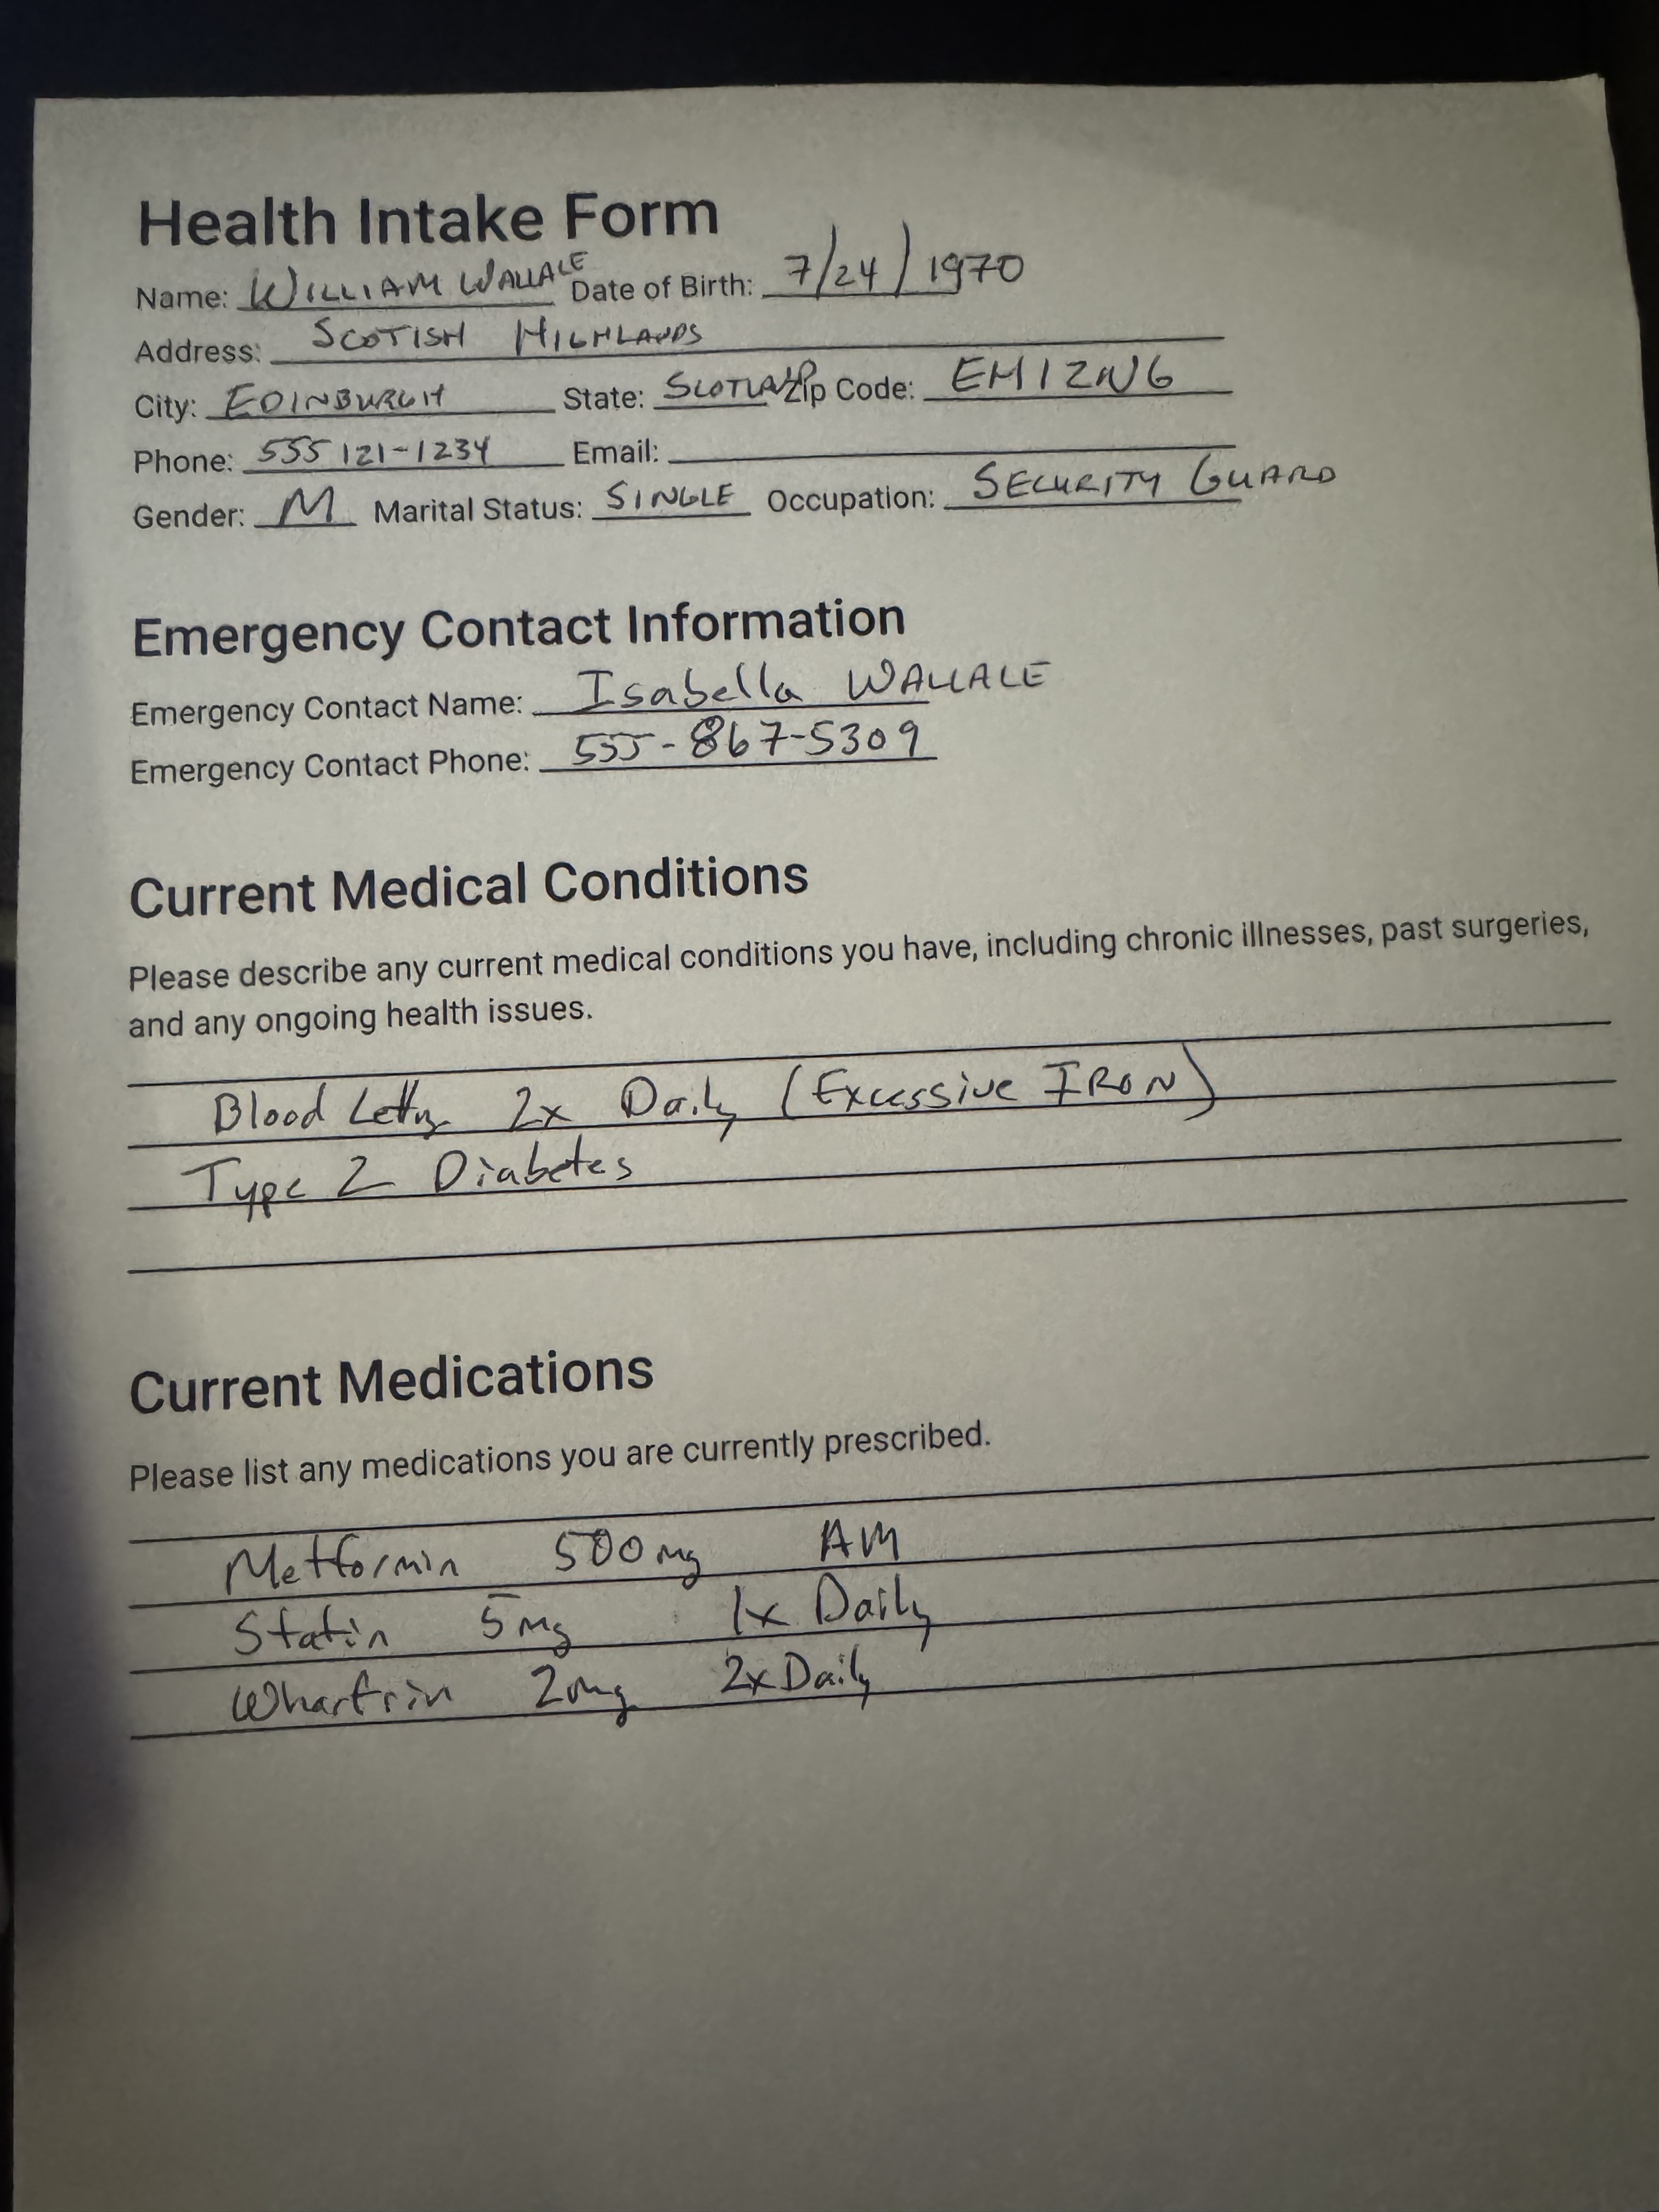 Health Intake Form
Name: WILLIAM WALLACE Date of Birth: 7/24/1970
Address: SCOTISH HIGHLANDS
City: EDINBURGH State: SCOTLAND Zip Code: EH12NG
Phone: 555 121-1234 Email:
Gender: M Marital Status: SINGLE Occupation: SECURITY GUARD
Emergency Contact Information
Emergency Contact Name: Isabella WALLACE
Emergency Contact Phone: 555-867-5309
Current Medical Conditions
Please describe any current medical conditions you have, including chronic illnesses, past surgeries,
and any ongoing health issues.
Blood 2x Daily (Excessive IRON)
Type 2 Diabetes
Current Medications
Please list any medications you are currently prescribed.
Metformin 500mg AM
Statin 5mg 1x Daily
Wharfrin 2mg 2x Daily